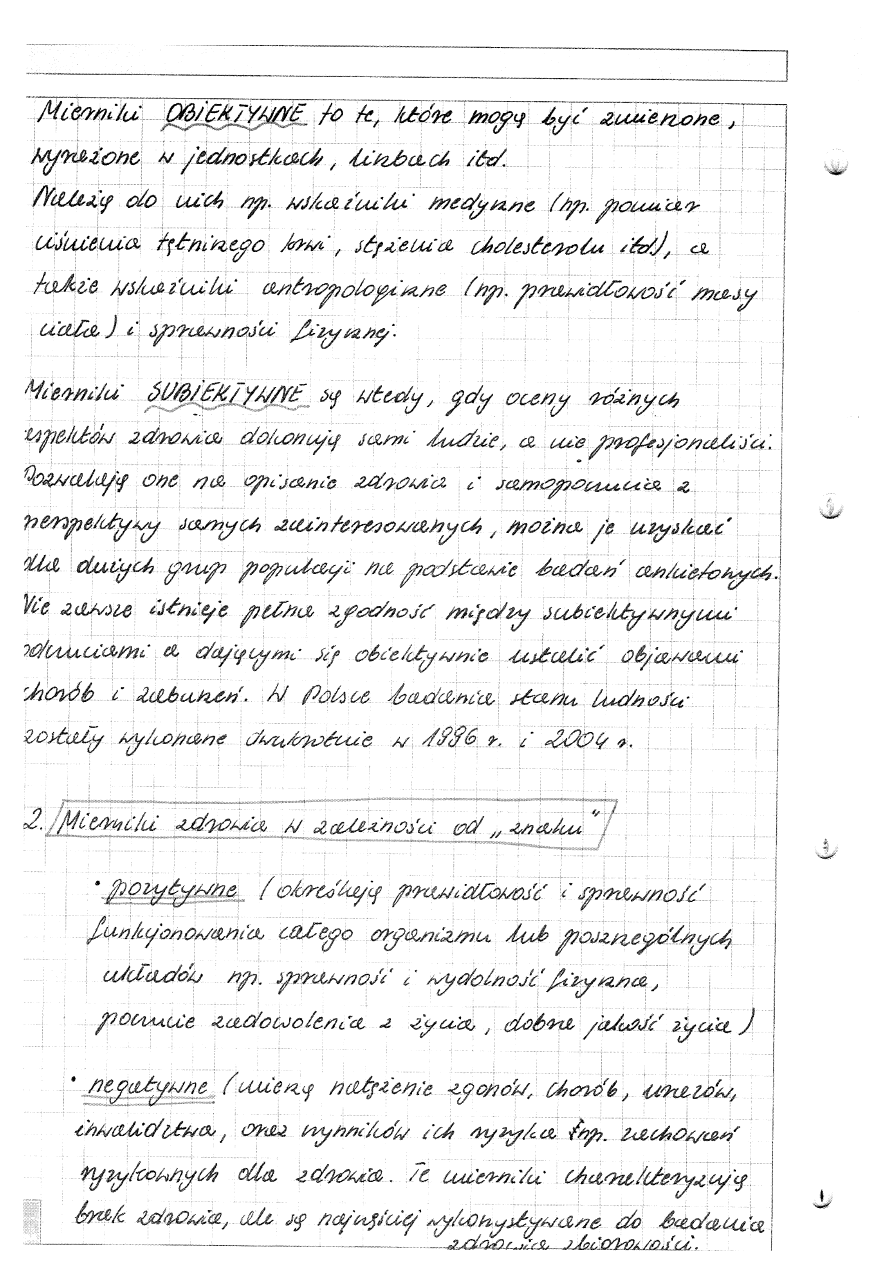 Mierniki OBIEKTYWNE to te, które mogą być zmierzone,
wyrażone w jednostkach, liczbach itd.
Należą do nich np. wskaźniki medyczne (np. pomiar
ciśnienia tętniczego krwi, stężenia cholesterolu itd), a
także wskaźniki antropologiczne (np. prawidłowość masy
ciała) i sprawności fizycznej.
Mierniki SUBIEKTYWNE są wtedy, gdy oceny różnych
aspektów zdrowia dokonują sami ludzie, a nie profesjonaliści.
Pozwalają one na opisanie zdrowia i samopoczucia z
perspektywy samych zainteresowanych, można je uzyskać
dla dużych grup populacji na podstawie badań ankietowych.
Nie zawsze istnieje pełna zgodność między subiektywnymi
odczuciami a dającymi się obiektywnie ustalić objawami
chorób i zaburzeń. W Polsce badania stanu ludności
zostały wykonane dwukrotnie w 1996 r. i 2004 r.
2. Mierniki zdrowia w zależności od „znaku"
• pozytywne (określają prawidłowość i sprawność
funkcjonowania całego organizmu lub poszczególnych
układów np. sprawność i wydolność fizyczna,
poczucie zadowolenia z życia, dobra jakość życia)
• negatywne (mierzą natężenie zgonów, chorób, urazów,
inwalidztwa, oraz czynników ich ryzyka np. zachowań
ryzykownych dla zdrowia. Te mierniki charakteryzują
brak zdrowia, ale są najczęściej wykorzystywane do badania
zdrowia zbiorowości.